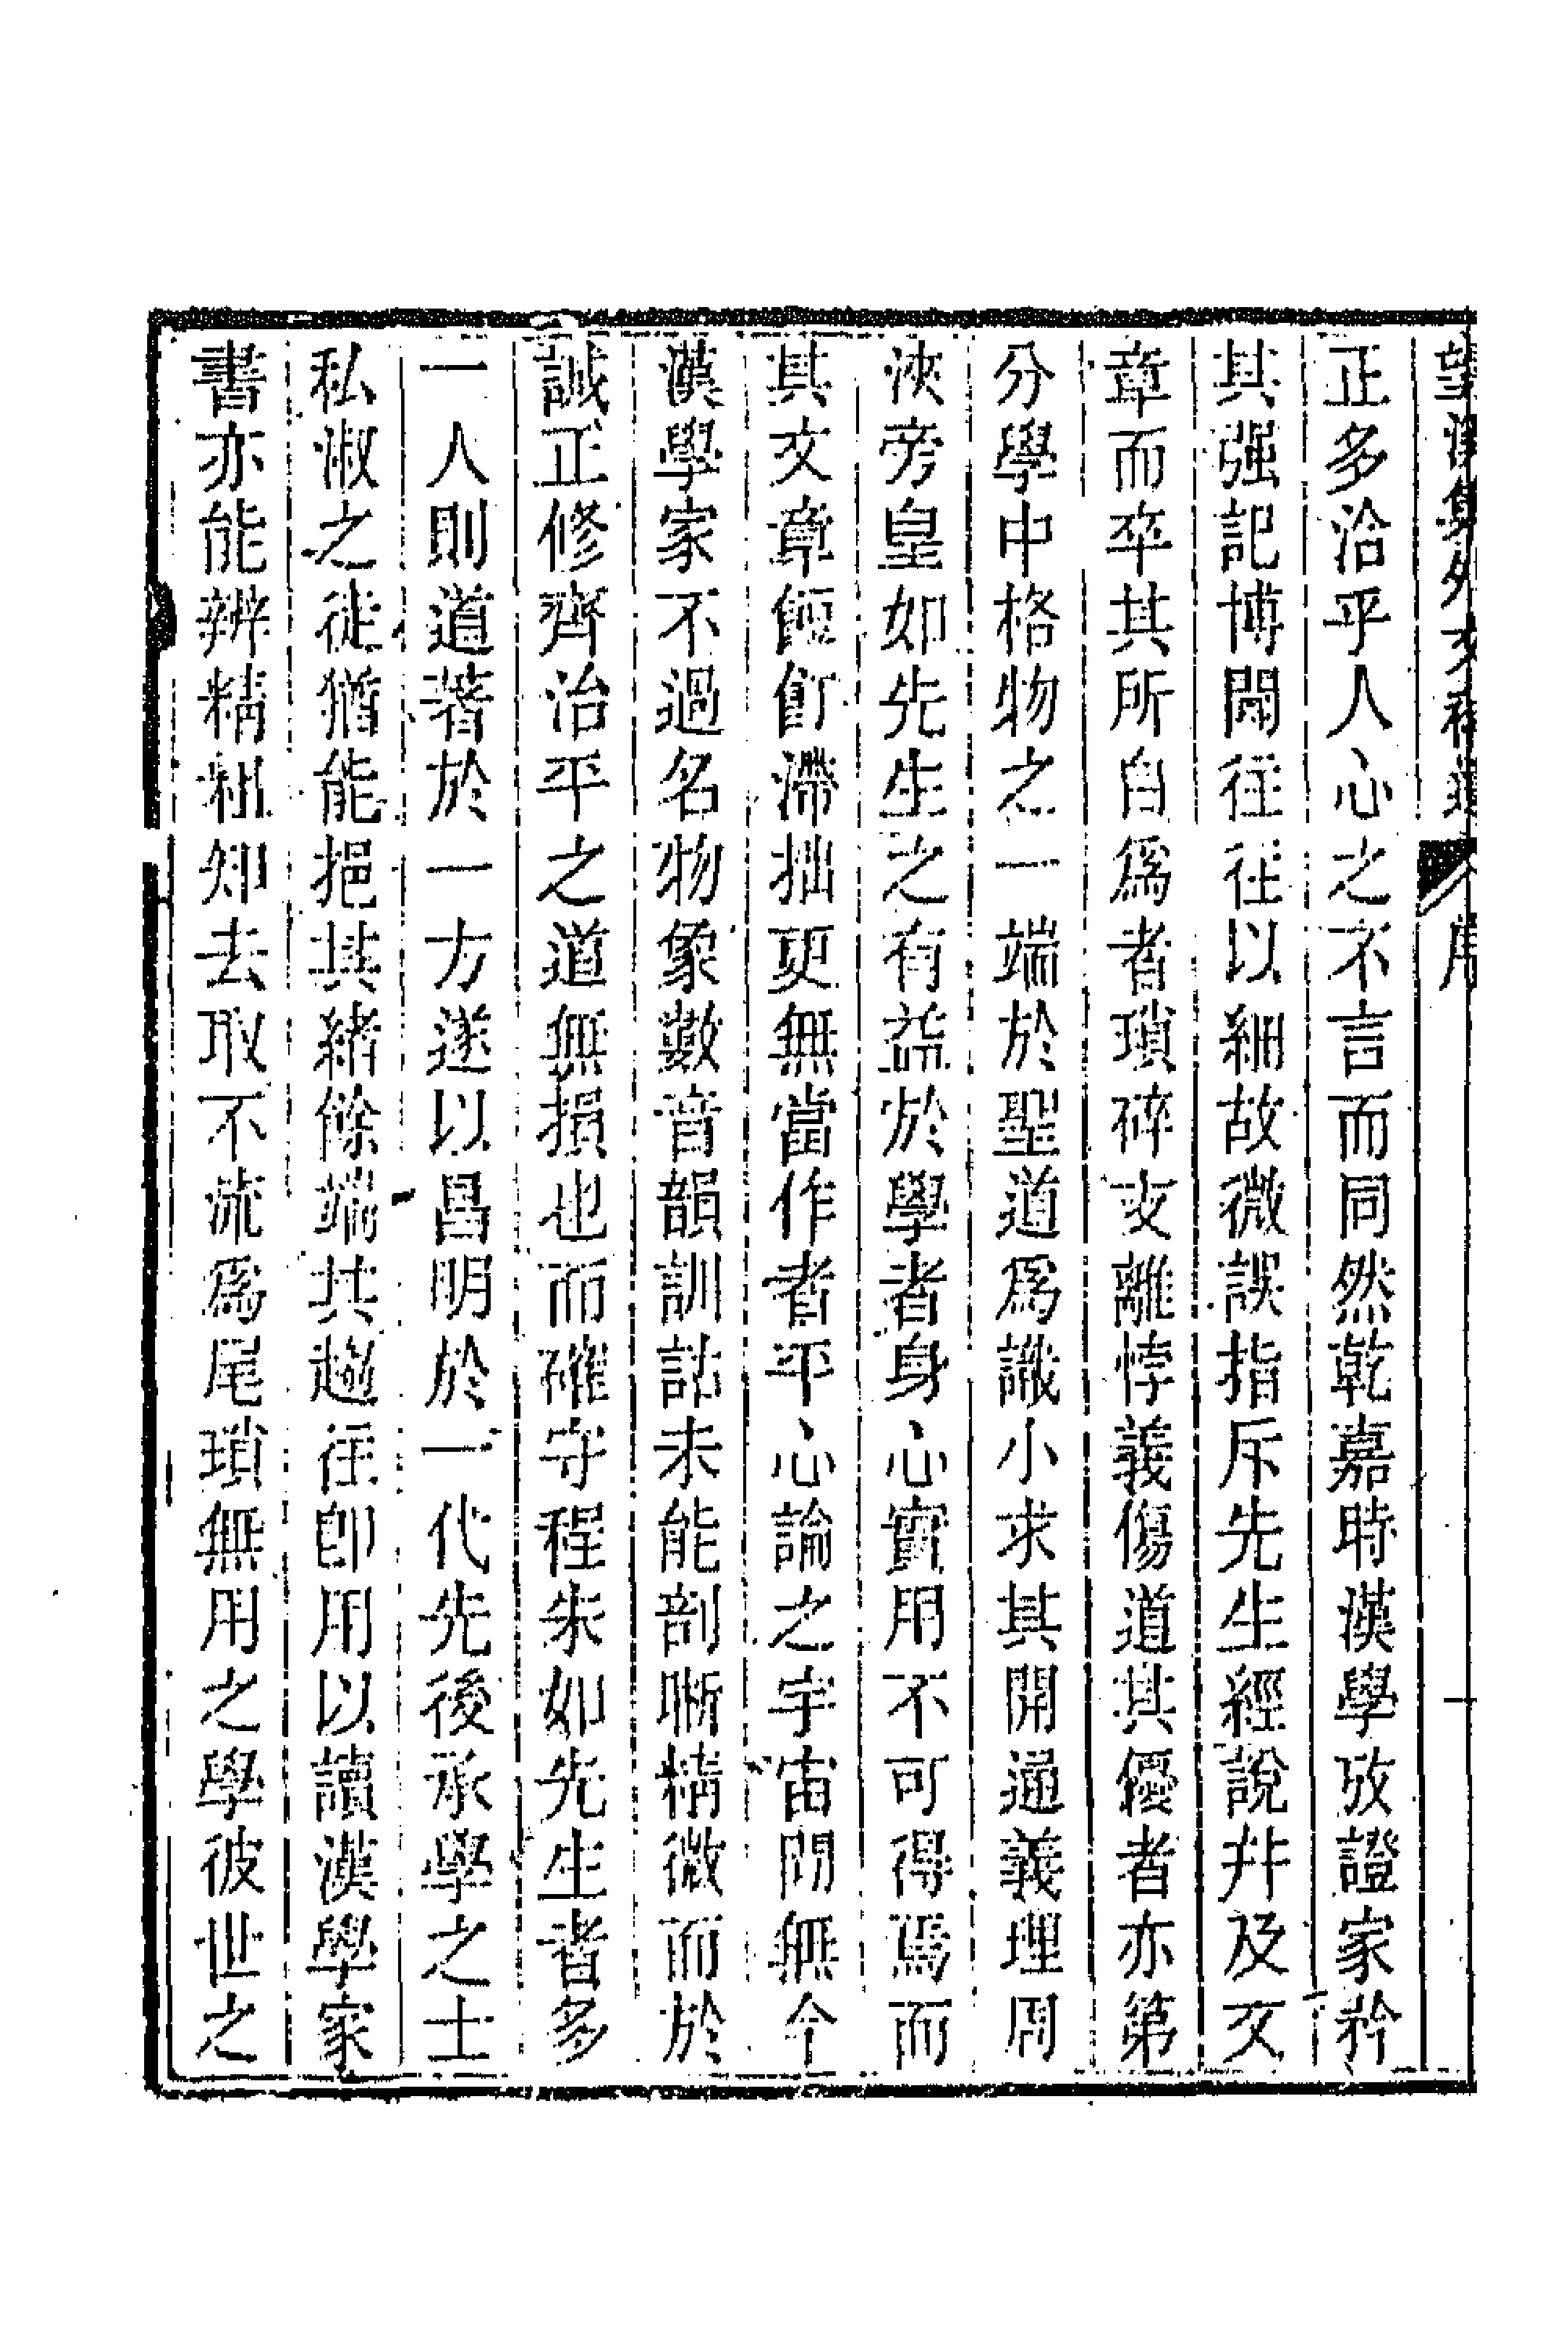 望溪集外文補遺 序 一
正多洽乎人心之不言而同然乾嘉時漢學攷證家矜
其强記博聞往往以細故微誤指斥先生經說幷及文
章而卒其所自爲者瑣碎支離悖義傷道其優者亦第
分學中格物之一端於聖道爲識小求其開通義理周
浹旁皇如先生之有益於學者身心實用不可得焉而
其文章餖飣滯拙更無當作者平心論之宇宙間無今
漢學家不過名物象數音韻訓詁未能剖晰精微而於
誠正修齊治平之道無損也而確守程朱如先生者多
一人則道著於一方遂以昌明於一代先後承學之士
私淑之徒猶能挹其緒餘端其趨往卽用以讀漢學家
書亦能辨精粗知去取不流爲尾瑣無用之學彼世之